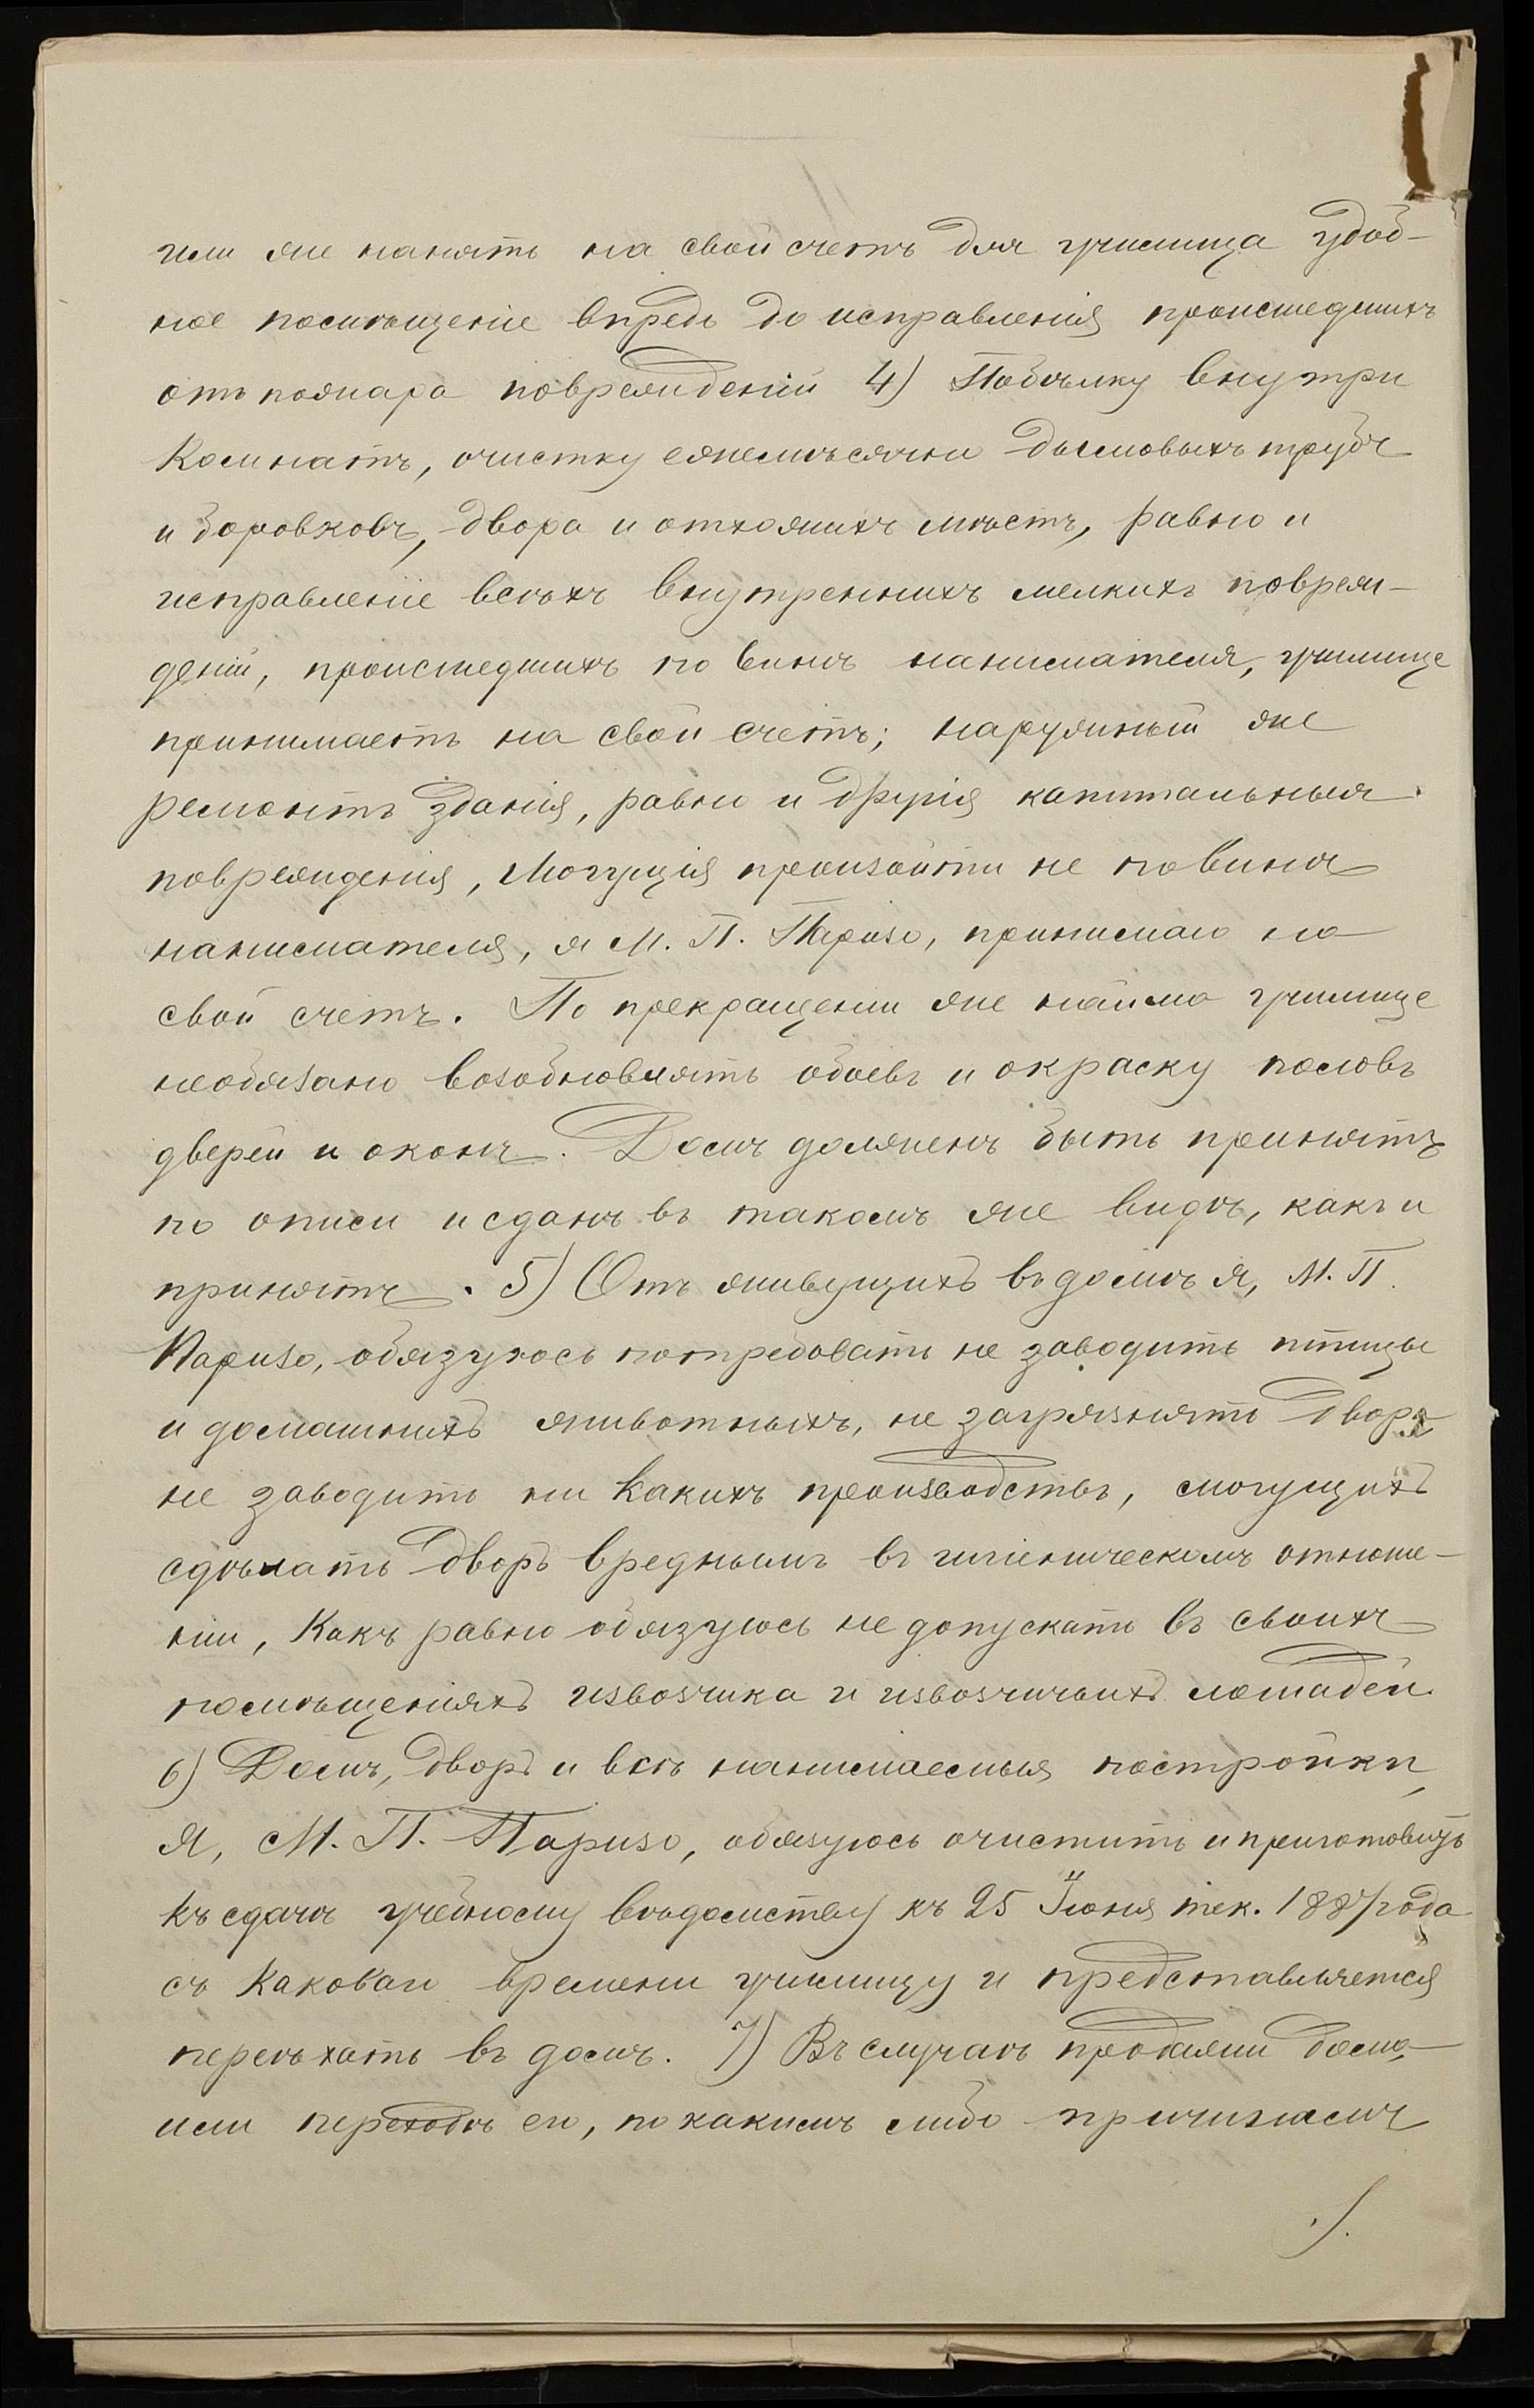 или же нанять на свой счетъ для училища удоб-
ное помѣщеніе впредь до исправленія происшедшихъ
отъ пожара поврежденій 4) Побѣлку внутри
комнатъ, очистку ежемѣсячно дымовыхъ трубъ
и боровковъ, двора и отхожихъ мѣстъ, равно и
исправленіе всѣхъ внутреннихъ мелкихъ повреж-
деній, происшедшихъ по винѣ нанимателя, училище
принимаетъ на свой счетъ; наружный же
ремонтъ зданія, равно и другія капитальныя
поврежденія, могущія произойти не по винѣ
нанимателя, я М. П. Паризо, принимаю на
свой счетъ. По прекращеніи же найма училище
необязано возобновлять обоевъ и окраску половъ
дверей и оконъ. Домъ долженъ быть принятъ
по описи и сданъ въ такомъ же видѣ, какъ и
принятъ. 5) Отъ живущихъ въ домѣ я, М. П.
Паризо, обязуюсь потребовать не заводить птицы
и домашнихъ животныхъ, не загрязнять двора
не заводить ни какихъ производствъ, могущихъ
сдѣлать дворъ вреднымъ въ гигіеническомъ отноше-
ніи, какъ равно обязуюсь не допускать въ своихъ
помѣщеніяхъ извозчика и извозчичьихъ лошадей.
6) Домъ, дворъ и всѣ нанимаемыя постройки,
я, М. П. Паризо, обязуюсь очистить и приготовить
къ сдачѣ учебному вѣдомству къ 25 Іюня тек. 1887 года
съ каковаго времени училищу и представляется
переѣхать въ домъ. 7) Въ случаѣ продажи дома,
или переходѣ его, по какимъ либо причинамъ
./.